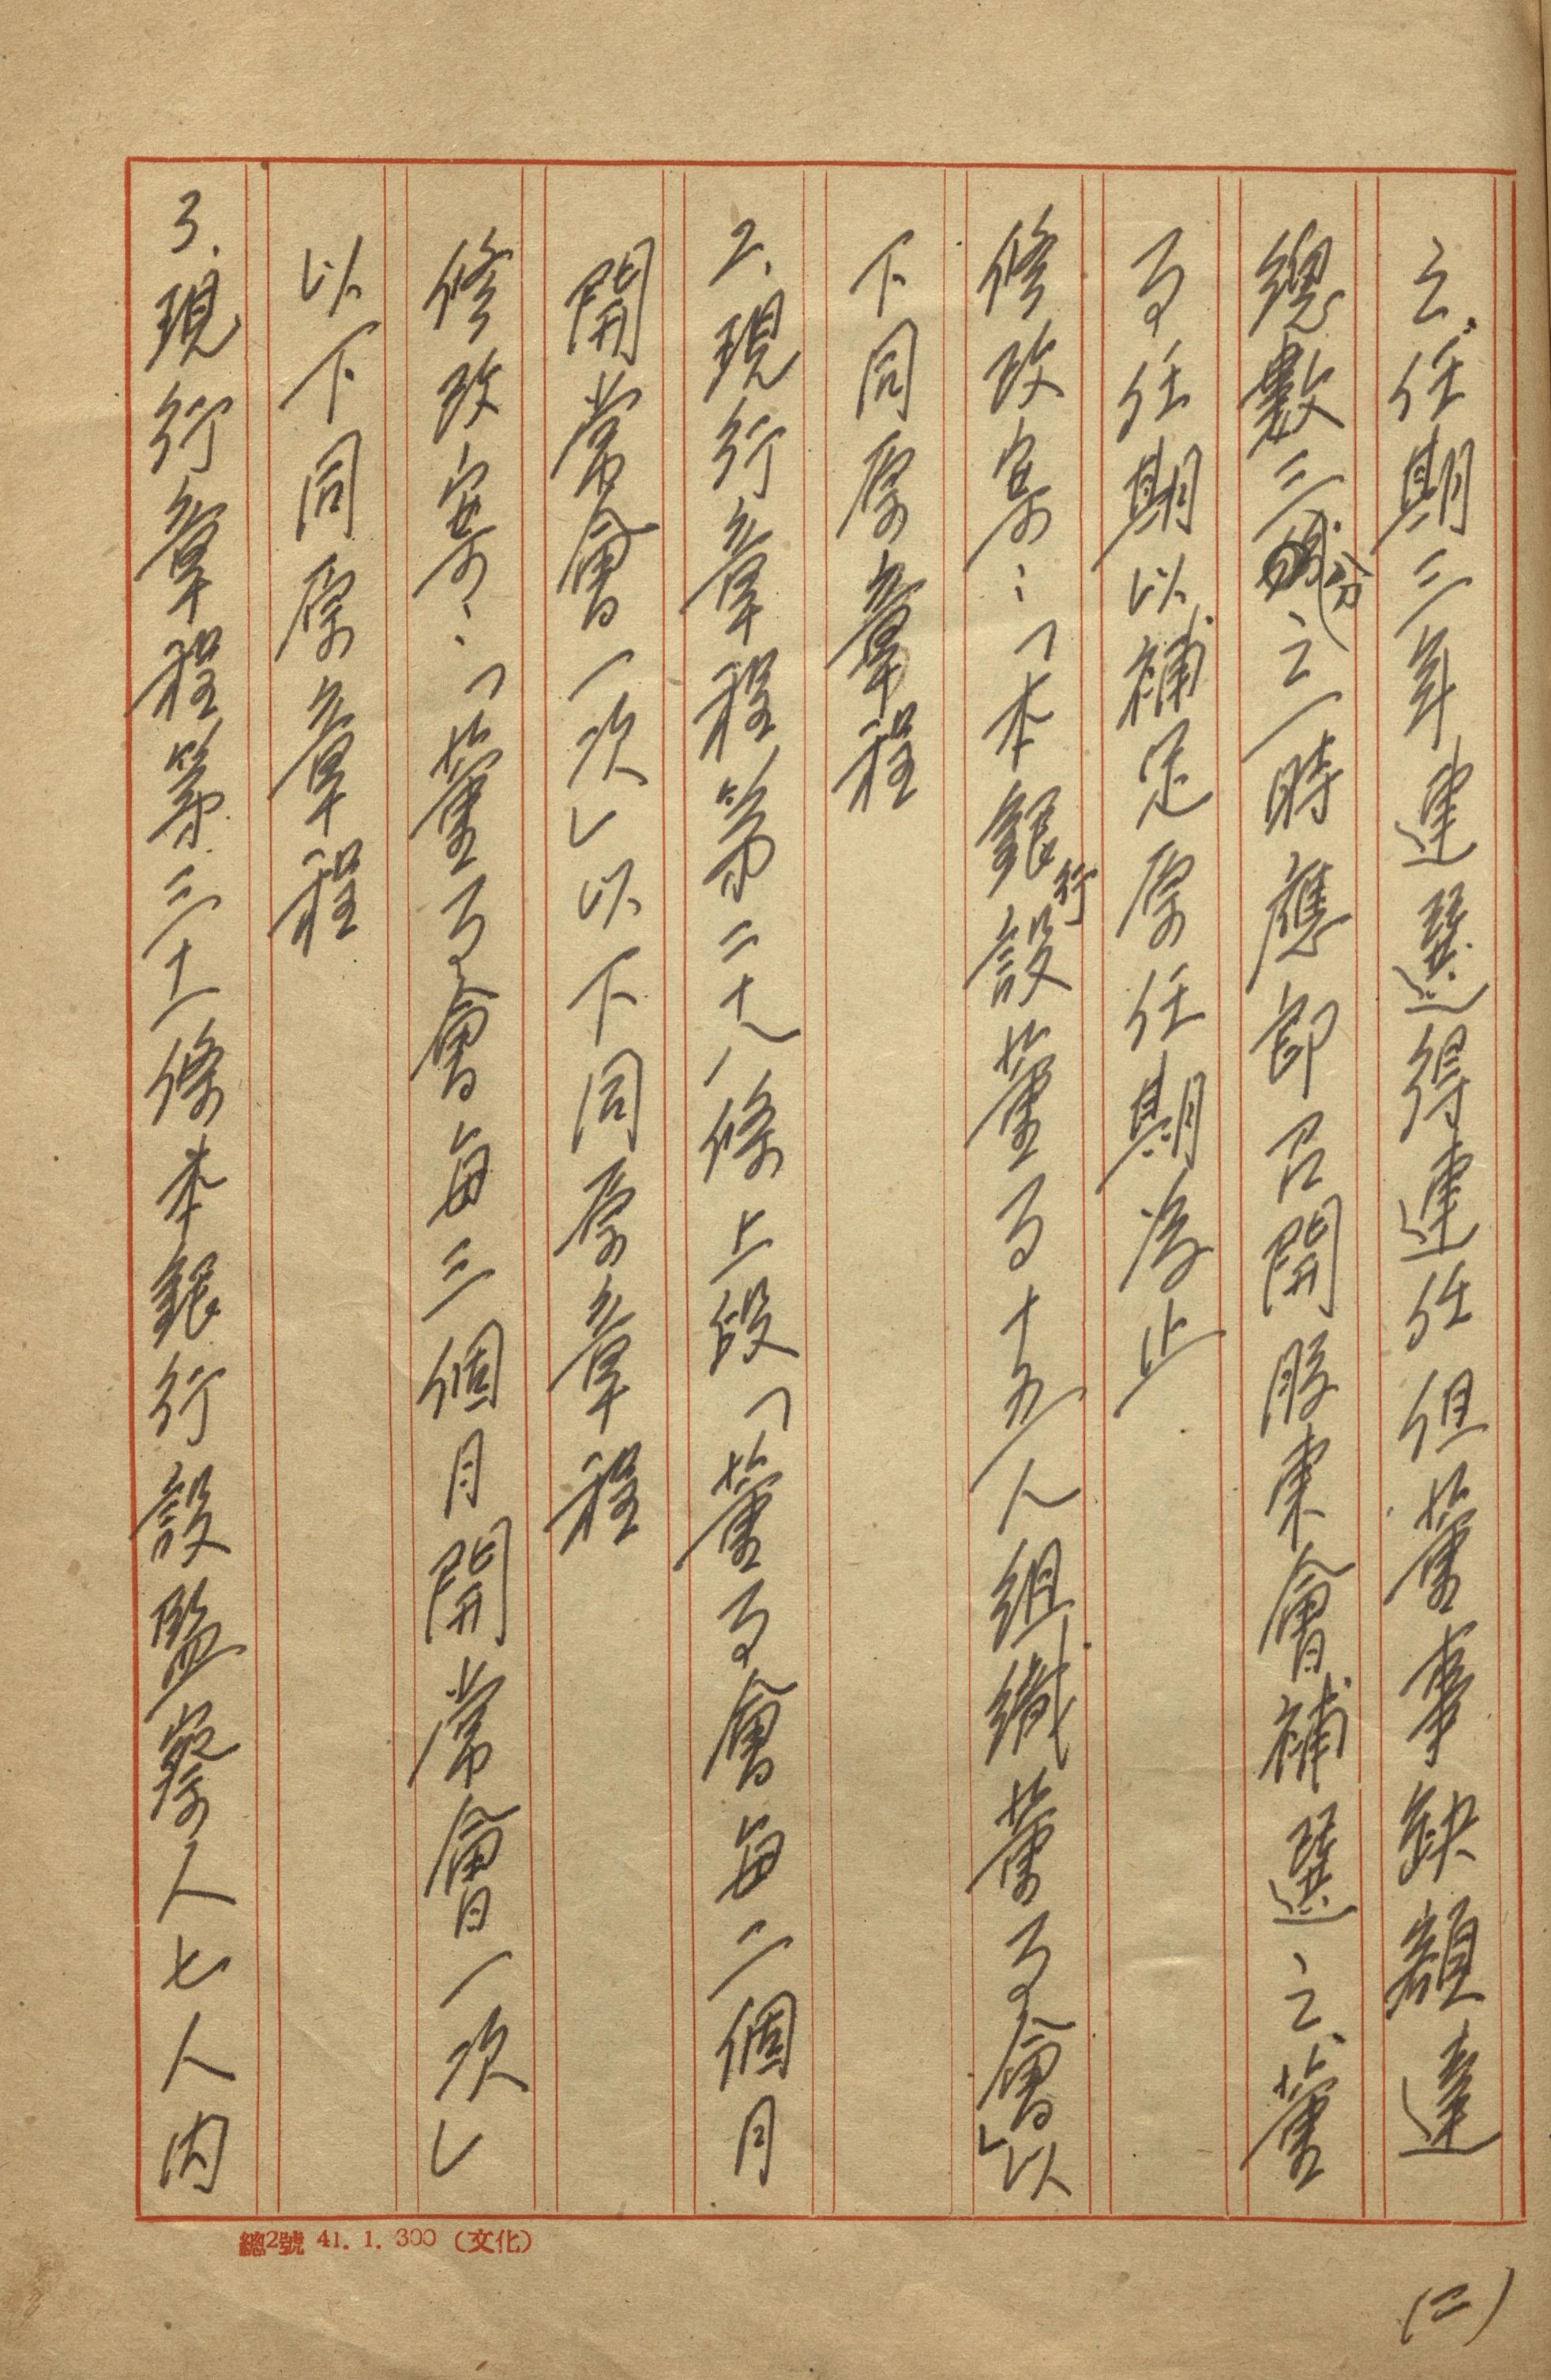 之任期三年連選得連任但董事缺額達
總數三分之一時應即召開股東會補選之董
事任期以補足原任期為止
修改案：「本銀行設董事十五人組織董事會」以
下同原章程
2.現行章程第二十八條上段「董事會每二個月
開常會一次」以下同原章程
修改案：「董事會每三個月開常會一次」
以下同原章程
3.現行章程第三十一條本銀行設監察人七人內
總2號 41.1.300（文化）
(二)